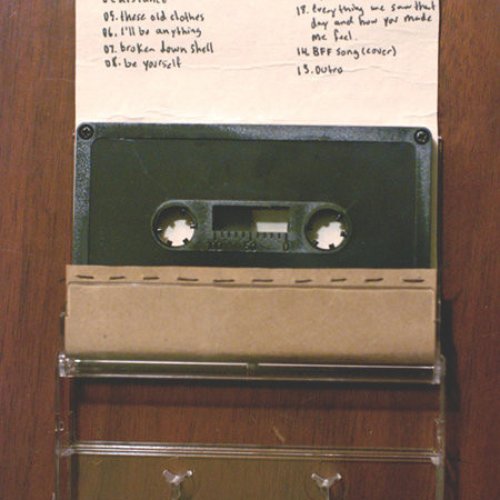 05. these old clothes
06. I'll be anything
07. broken down shell
08. be yourself
13. everything we saw that
day and how you made
me feel.
14. BFF song (cover)
15. outro
50 0